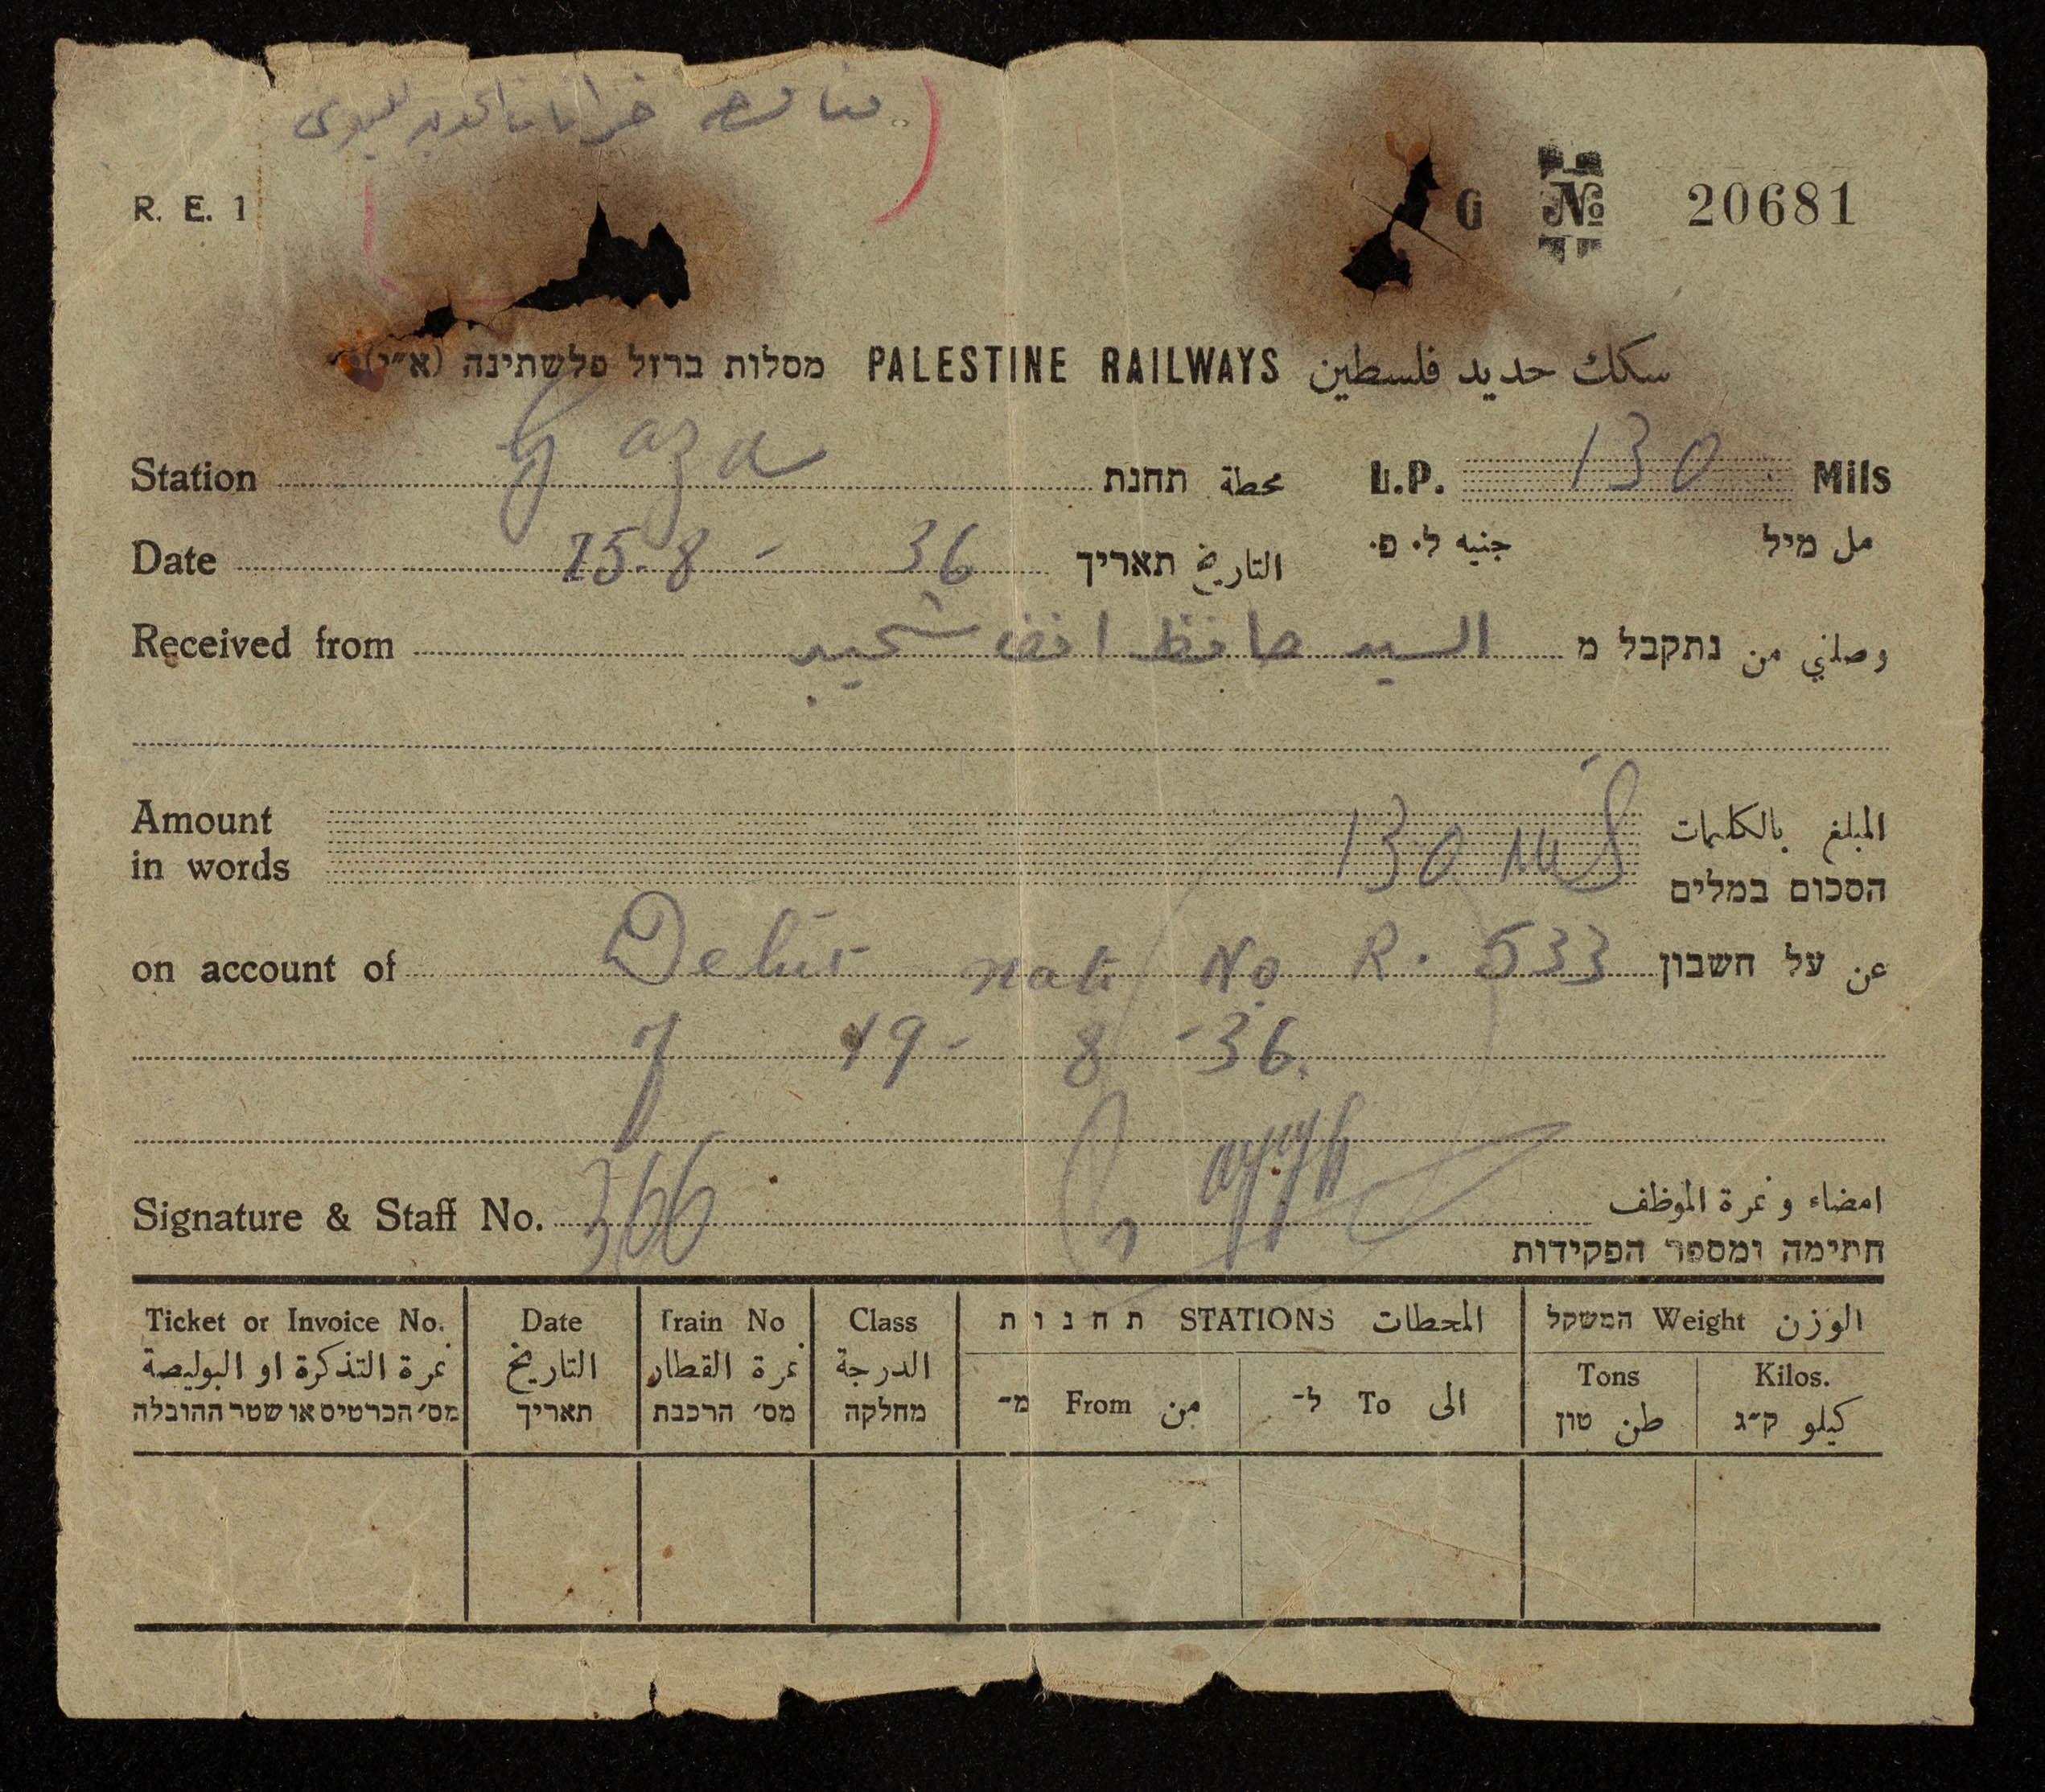 R. E. 1 G No 20681
מסלות ברזל פלשתינה (א״י) PALESTINE RAILWAYS سكك حديد فلسطين
Station Gaza محطة תחנת L.P. 130 Mils
جنيه ל. פ. مل מיל
Date 25.8 - 36 التاريخ תאריך
Received from السيد حافظ وصلني من נתקבל מ
Amount in words 130 Mls المبلغ بالكلمات הסכום במלים
on account of No R. 533 عن על חשבון
19 - 8 - 36.
Signature & Staff No. 366 امضاء و نمرة الموظف
חתימה ומספר הפקידות
Ticket or Invoice No. نمرة التذكرة او البوليصة מס׳ הכרטיס או שטר ההובלה
Date التاريخ תאריך
Train No نمرة القطار מס׳ הרכבת
Class الدرجة מחלקה
תחנות STATIONS المحطات
מ- From من
ל- To الى
המשקל Weight الوزن
Tons طن טון
Kilos. كيلو ק״ג